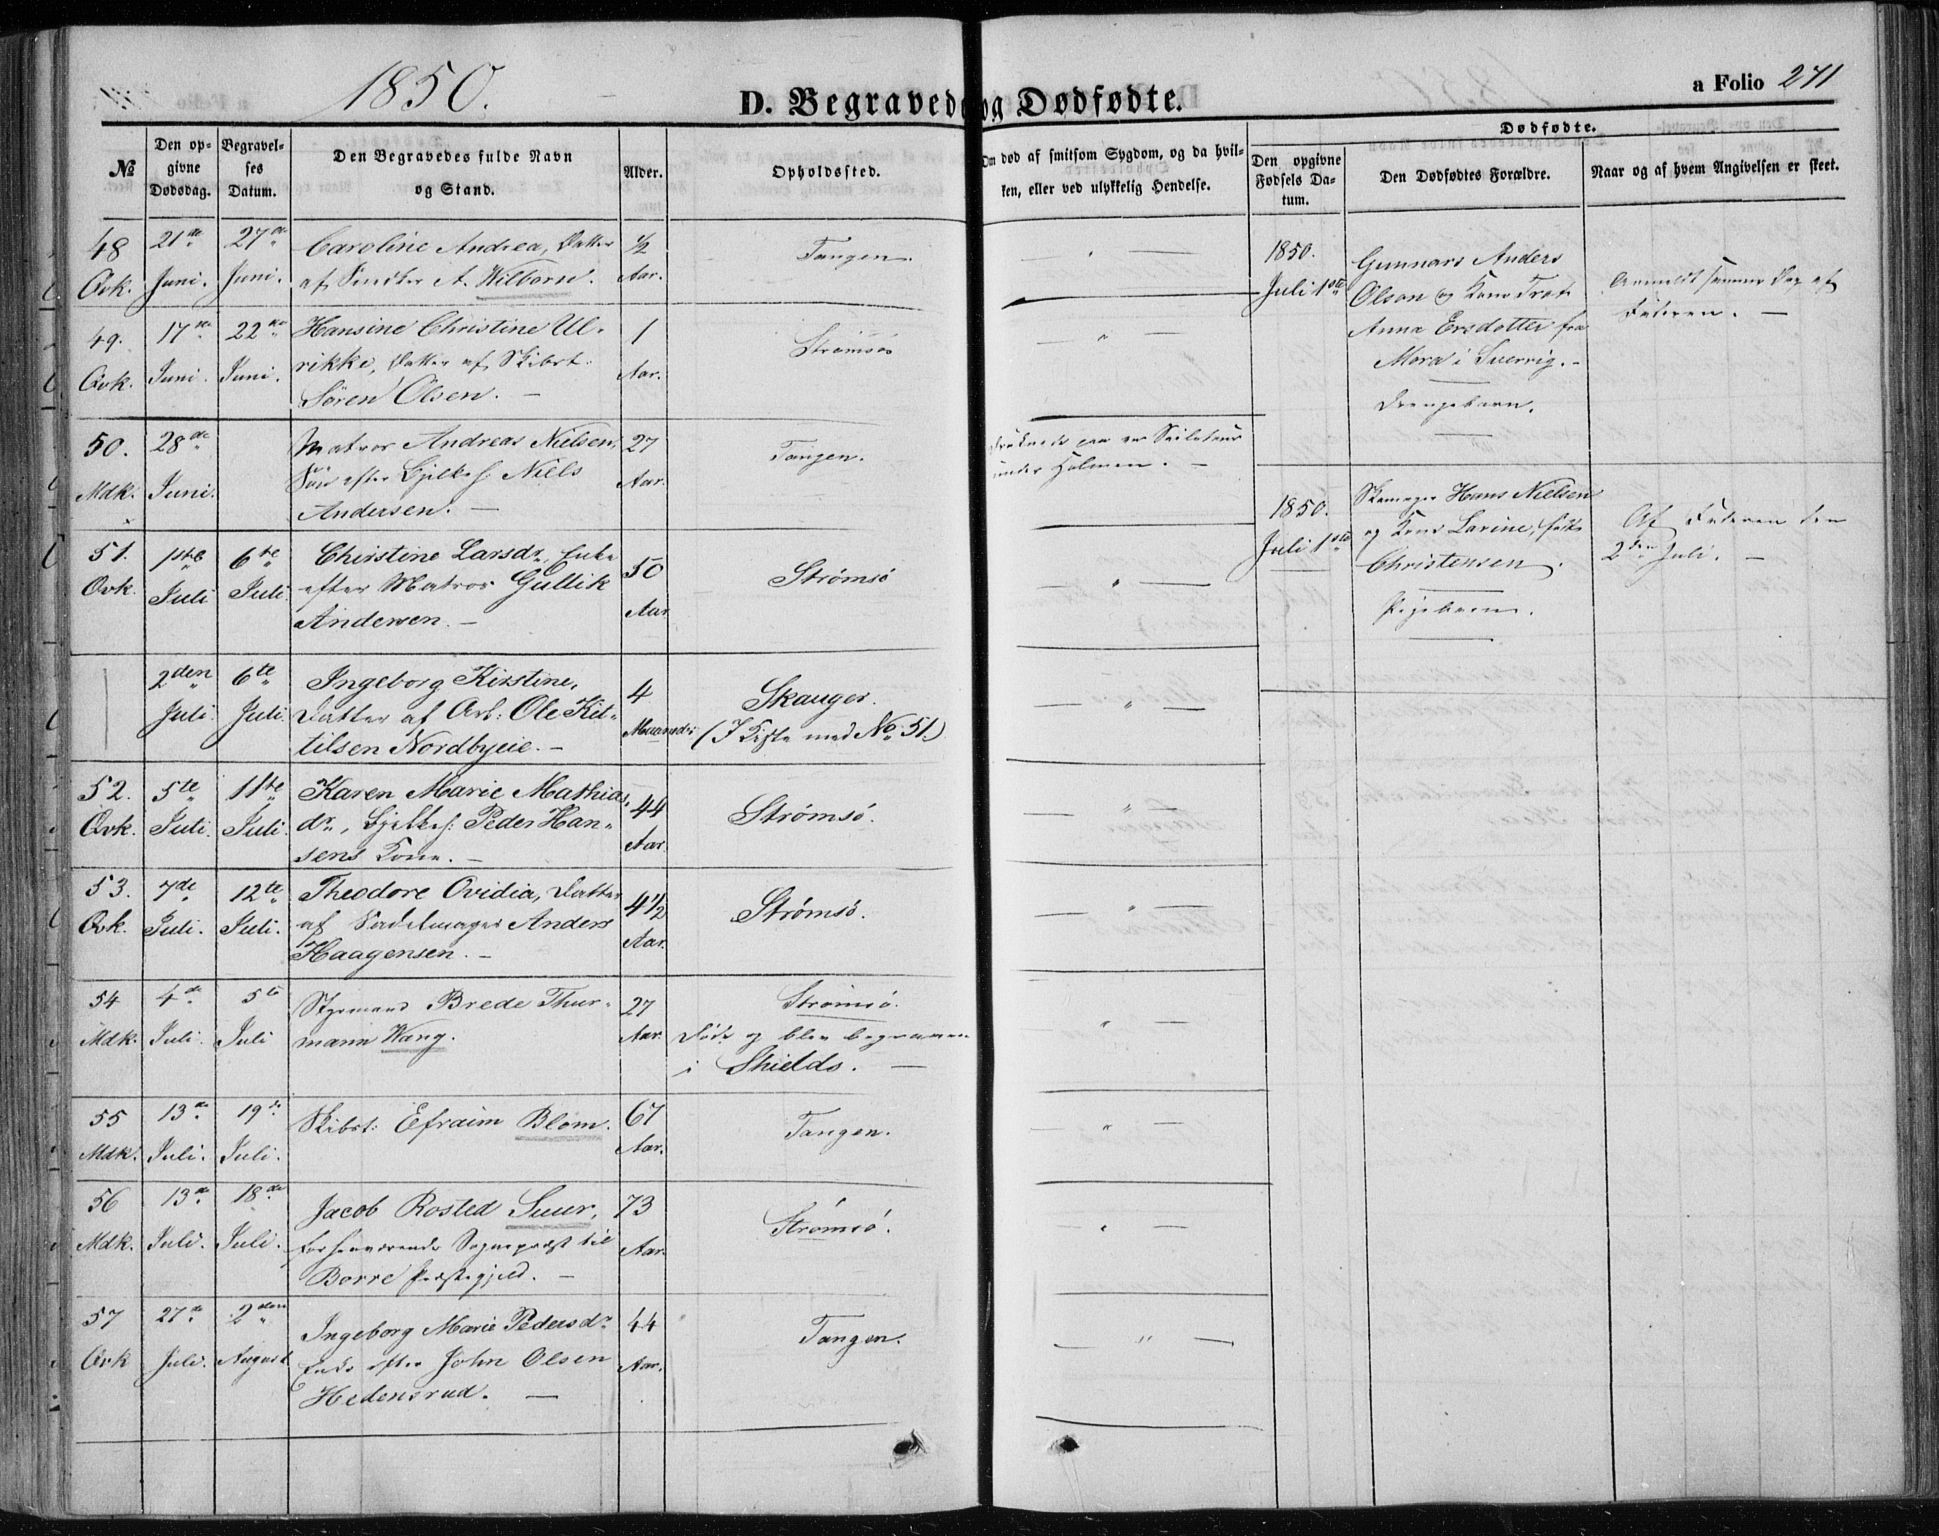 1850.
D. Begravede og Dødfødte.
a Folio 271
№
Den opgivne Dødsdag.
Begravelses Datum.
Den Begravedes fulde Navn og Stand.
Alder.
Opholdssted.
Om død af smitsom Sygdom, og da hvilken, eller ved ulykkelig Hendelse.
Dødfødte.
Den opgivne Fødsels Datum.
Den Dødfødtes Forældre.
Naar og af hvem Angivelsen er skeet.
48 21de 27de Caroline Andrea, Datter ½ Tangen.
Qvk. Juni. Juni. af Snedker A. Wilborn. Aar.
49. 17de 22de Hansine Christine Ul- 1 Strømsøe
Qvk. Juni. Juni. rikke, Datter af Skibst. Aar.
Søren Olsen. –
50. 28de Matros Andreas Nielsen, 27 Tangen. druknede paa en Seilatour
Mdk. Juni. Søn efter Niels Aar. under Holmen. –
Andersen. –
51. 1ste 6te Christine Larsdr, Enke 50 Strømsø
Qvk. Juli Juli. efter Matros Gullik Aar
Andersen. –
2den 6te Ingeborg Kirstine, 4 Skauger.
Juli. Juli. Datter af Arb: Ole Kit- Maaneder (I Kiste med No. 51.)
tilsen Nordbyeie. –
52. 5te 11te Karen Marie Mathias- 44 Strømsö.
Qvk. Juli. Juli. dr, Peder Han- Aar.
sens Kone. –
53. 7de 12te Theodore Ovidia, Datter 4½ Strømsö.
Qvk. Juli. Juli. af Sadelmager Anders Aar.
Haagensen. –
54 4de 5te Styrmand Brede Thur- 27 Strömsö.
Mdk. Juli. Juli mann Wang. Aar. Døde og blev begraven
i Shields. –
55 13de 19de Skibst: Efraim Blom. 67 Tangen.
Mdk. Juli. Juli. Aar.
56 13de 18de Jacob Rosted Suur, 73 Strömsö.
Mdk. Juli. Juli. forhenværende Sognepræst til Aar.
Borre Præstegjeld. –
57 27de 2den Ingeborg Marie Pedersdr 44 Tangen.
Qvk Juli. August Enke efter John Olsen Aar.
Hedensrud. –
1850. Gunnars Anders
Juli 1ste Olson og Kone Trots Anmeldt samme Dag af
Anna Ersdotter fra Faderen. –
Mora i Sverrig. –
Drengebarn.
1850. Skomager Hans Nielsen
og Kone Larine, født Af Faderen den
Juli 1ste Christensen. 2den Juli. –
Pigebarn.